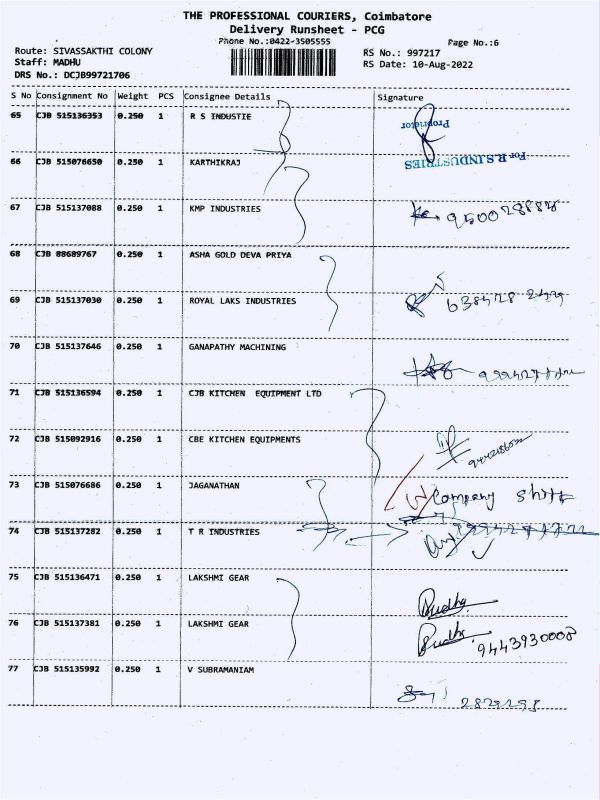 THE PROFESSIONAL COURIERS, Coimbatore
Delivery Runsheet - PCG
Phone No.:0422-3505555
Page No.:6
Route: SIVASSAKTHI COLONY
RS No.: 997217
Staff: MADHU
RS Date: 10-Aug-2022
DRS No.: DCJB99721706
S No Consignment No Weight PCS Consignee Details Signature
65 CJB 515136353 0.250 1 R S INDUSTIE
Proprietor
66 CJB 515076650 0.250 1 KARTHIKRAJ
For R.S.INDUSTRIES
67 CJB 515137088 0.250 1 KMP INDUSTRIES
68 CJB 88689767 0.250 1 ASHA GOLD DEVA PRIYA
69 CJB 515137030 0.250 1 ROYAL LAKS INDUSTRIES
70 CJB 515137646 0.250 1 GANAPATHY MACHINING
71 CJB 515136594 0.250 1 CJB KITCHEN EQUIPMENT LTD
72 CJB 515092916 0.250 1 CBE KITCHEN EQUIPMENTS
73 CJB 515076686 0.250 1 JAGANATHAN
Company shift
74 CJB 515137282 0.250 1 T R INDUSTRIES
75 CJB 515136471 0.250 1 LAKSHMI GEAR
Sudha
76 CJB 515137381 0.250 1 LAKSHMI GEAR
Sudha 9443930008
77 CJB 515135992 0.250 1 V SUBRAMANIAM